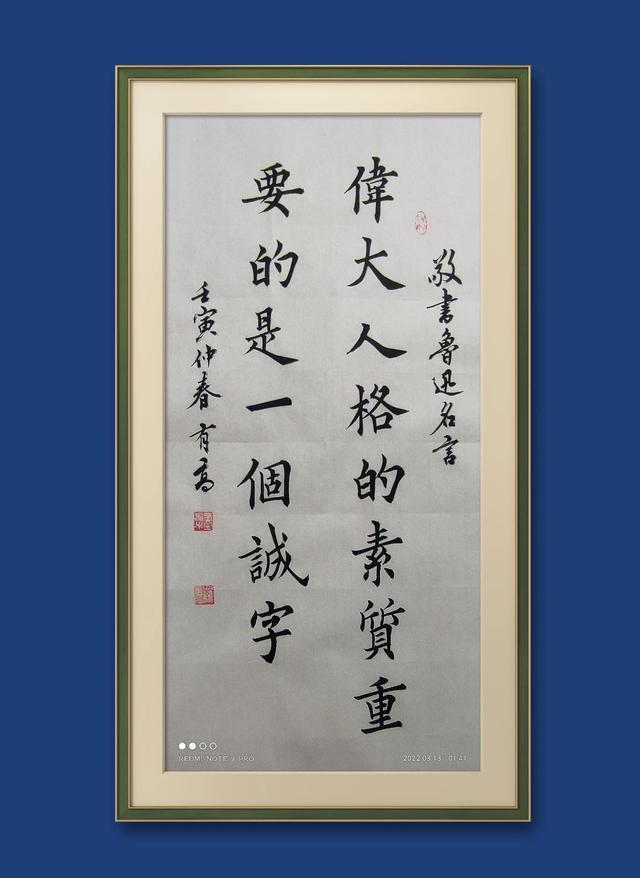 敬書魯迅名言
偉大人格的素質重
要的是一個誠字
壬寅仲春有高
REDMI NOTE 9 PRO
2022.03.13 01:41